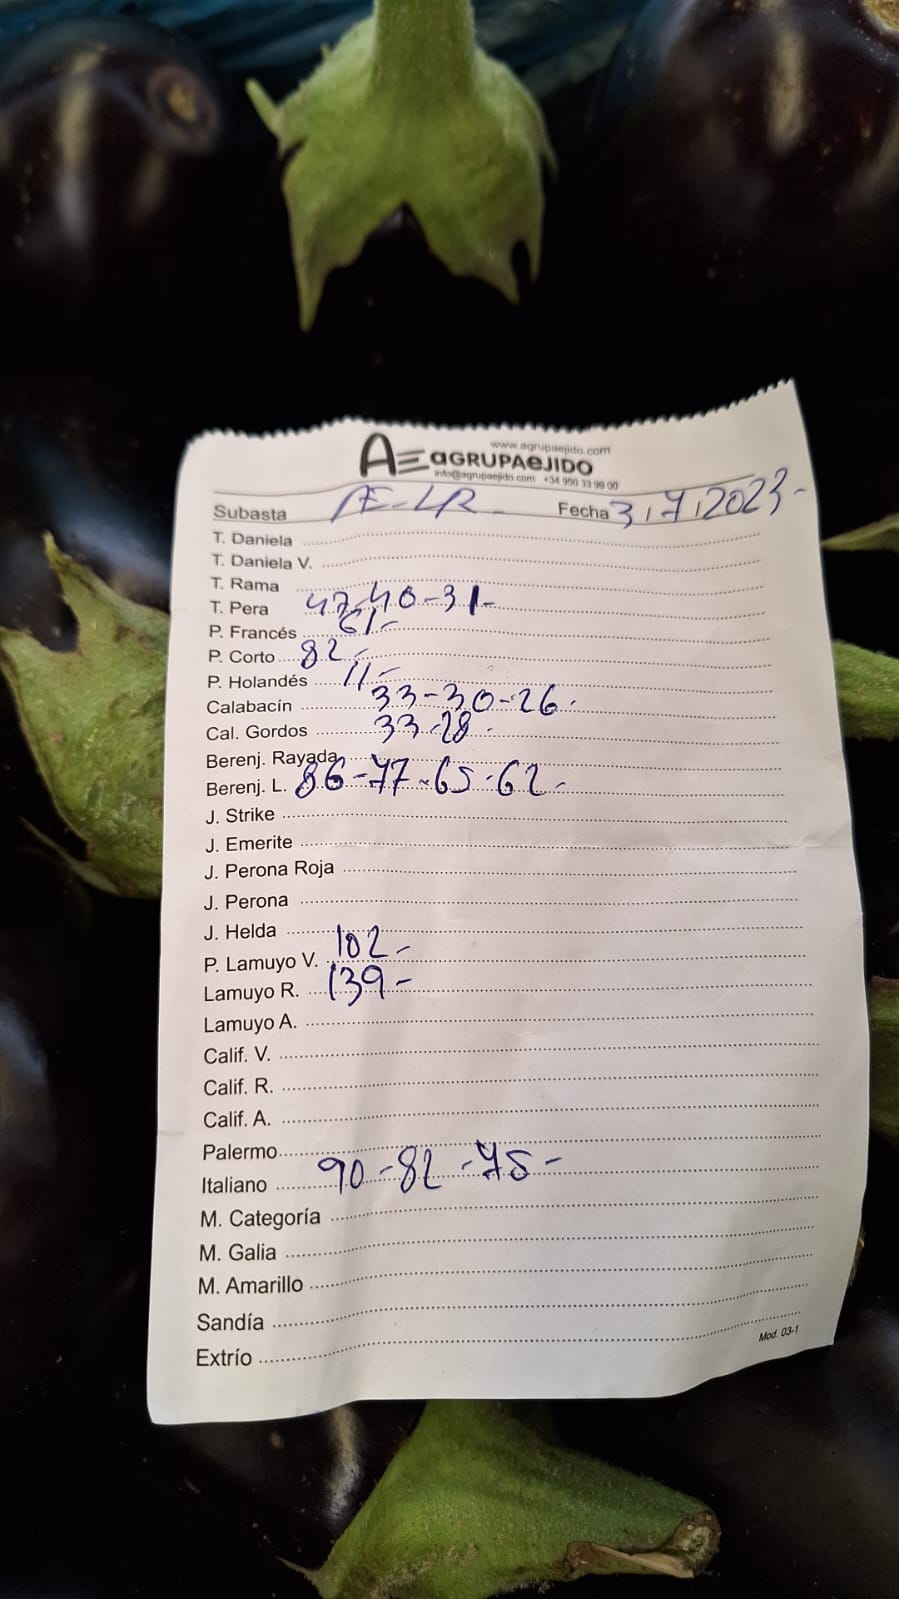 www.agrupaejido.com
AE AGRUPAEJIDO
info@agrupaejido.com +34 950 33 99 00
Subasta AE-LR- Fecha 3/7/2023-
T. Daniela
T. Daniela V.
T. Rama
T. Pera 47-40-31-
P. Francés 61-
P. Corto 82-
P. Holandés 11-
Calabacín 33-30-26-
Cal. Gordos 33-28-
Berenj. Rayada
Berenj. L. 86-77-65-62-
J. Strike
J. Emerite
J. Perona Roja
J. Perona
J. Helda
P. Lamuyo V. 102-
Lamuyo R. 139-
Lamuyo A.
Calif. V.
Calif. R.
Calif. A.
Palermo
Italiano 90-82-75-
M. Categoría
M. Galia
M. Amarillo
Sandía
Extrío
Mod. 03-1